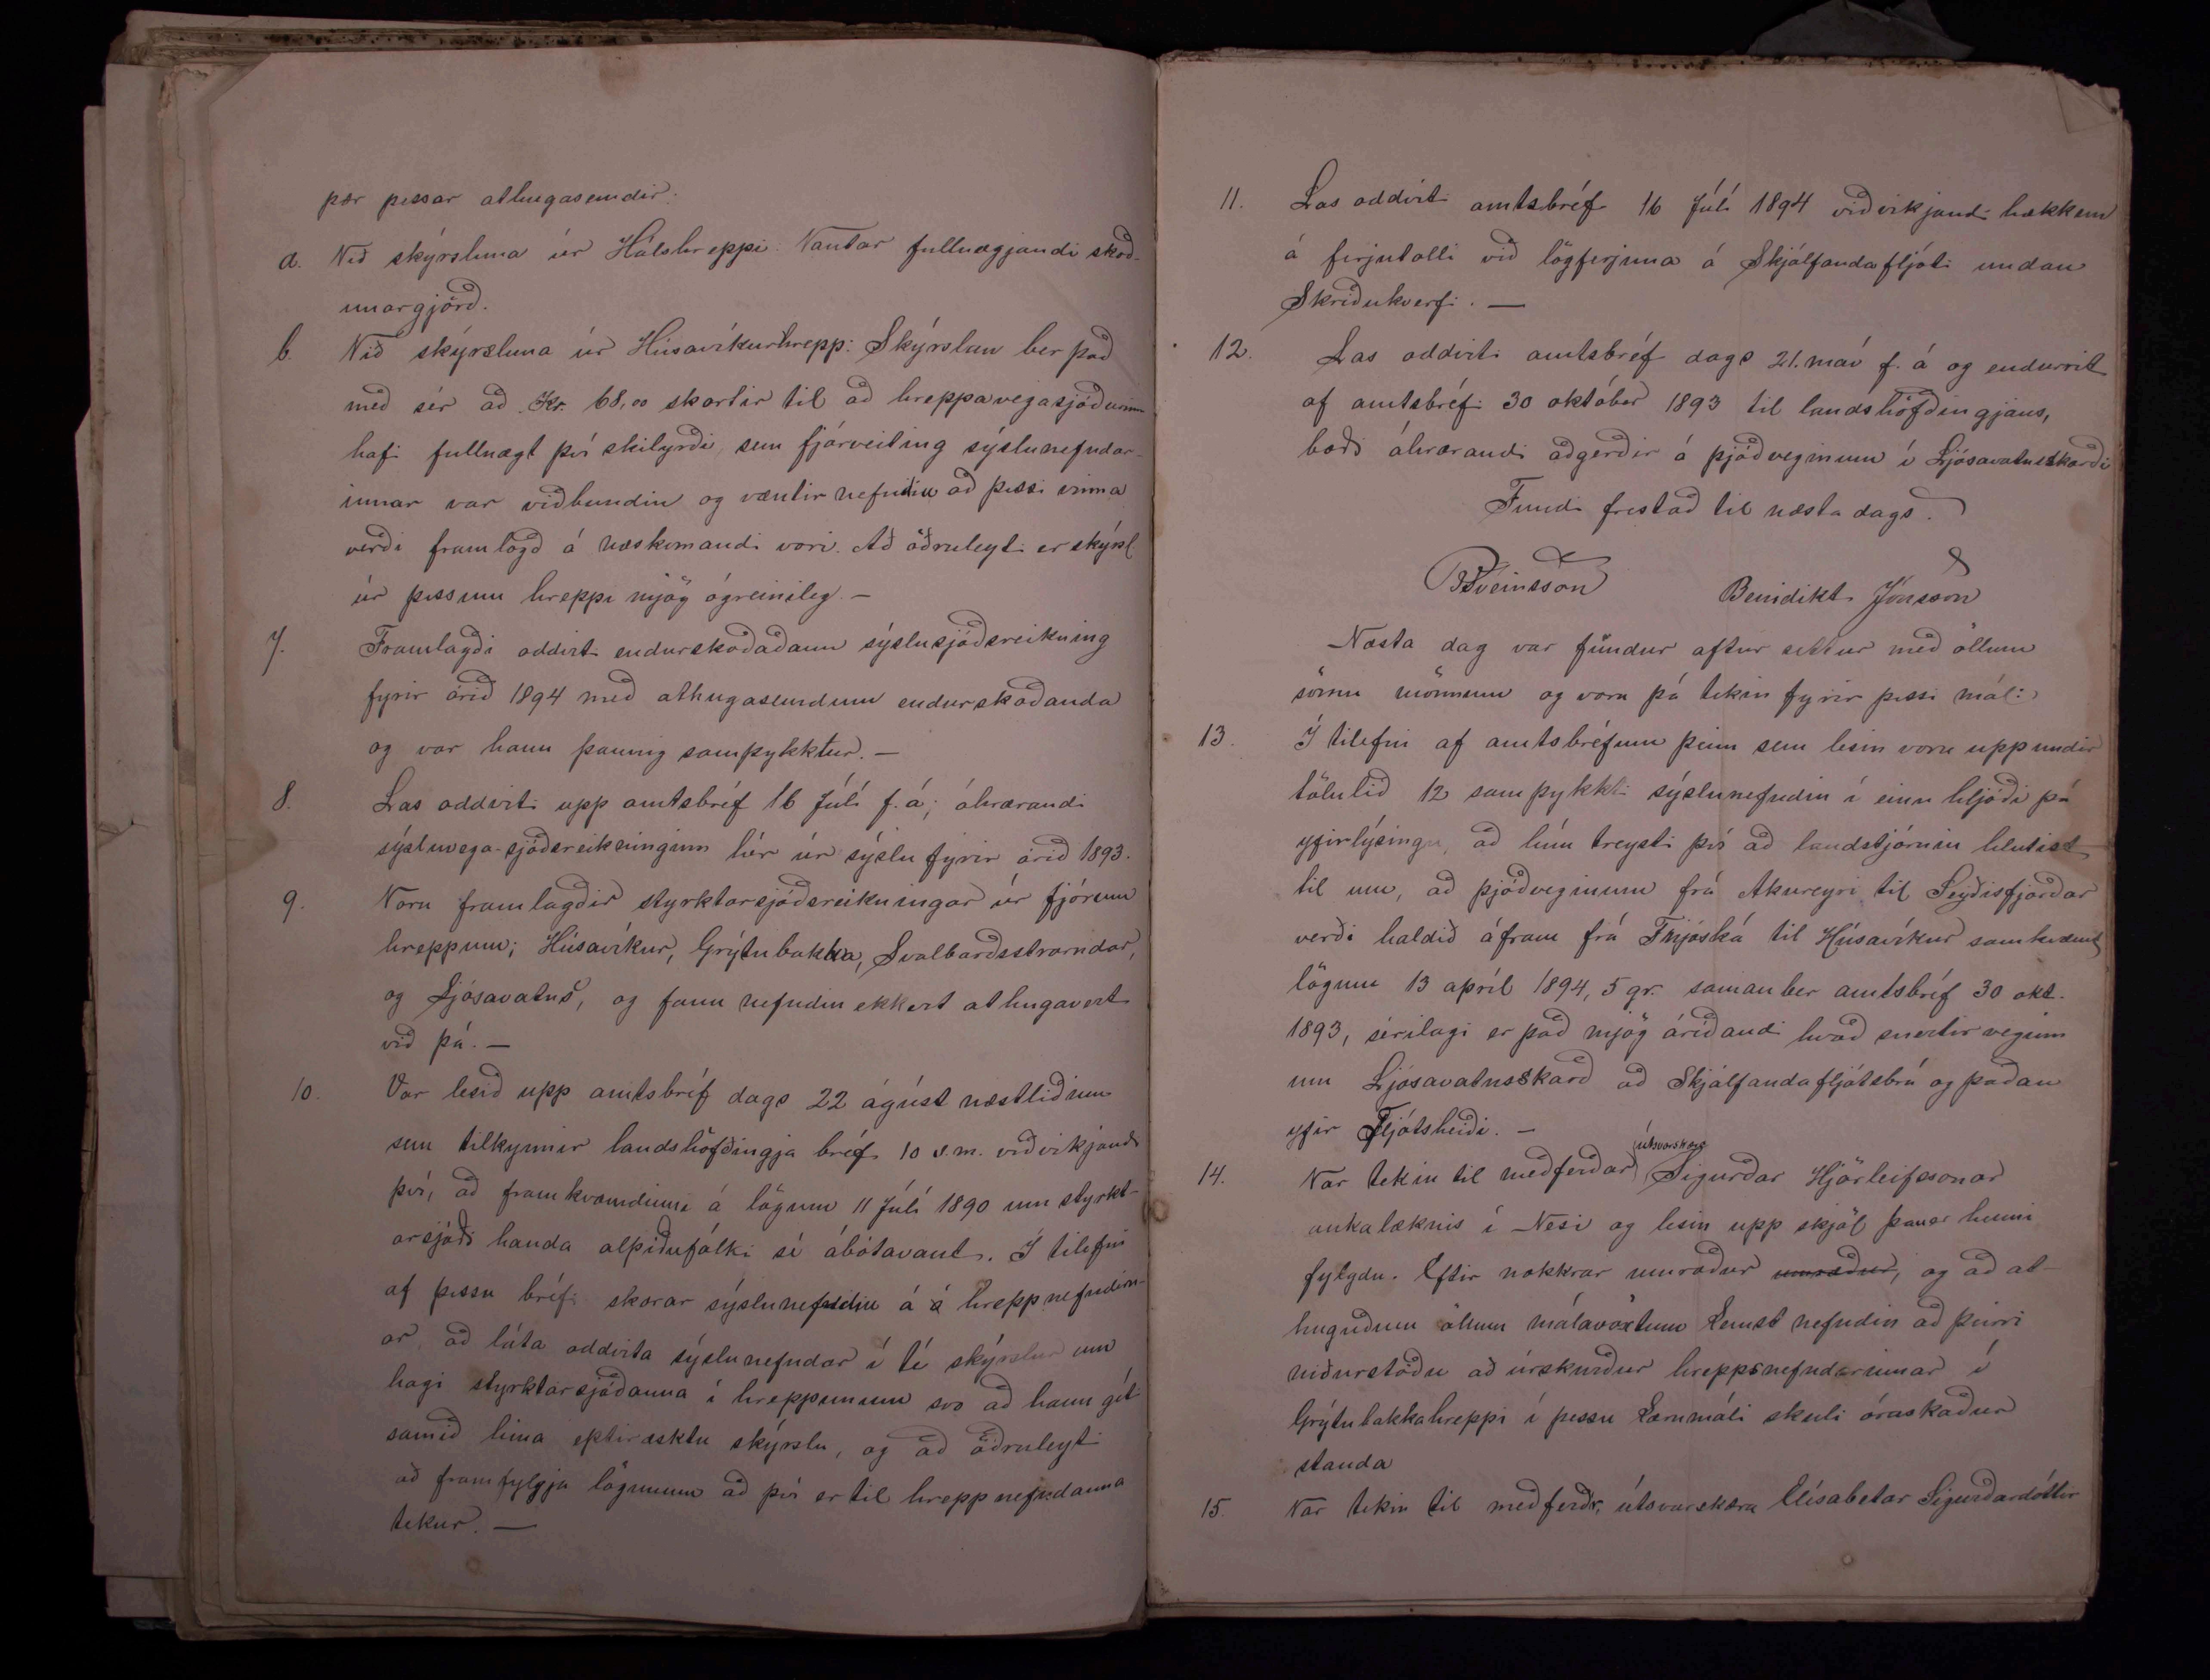 þær þessar athugasemdir:
a. Við skýrsluna úr Hálshreppi: Vantar fullnægjandi skoð-
unargjörð.
b. Við skýrsluna úr Húsavíkurhrepp: Skýrslan ber það
með sér að Kr. 68,00 skortir til að hreppavegasjóðurinn
hafi fullnægt því skilyrði, sem fjárveiting sýslunefndar-
innar var viðbundin og væntir nefndin að þessi vinna
verði framlögð á næskomandi vori. Að öðruleyti er skýrsl.
úr þessum hreppi mjög ógreinileg. —
7. Framlagði oddviti endurskoðaðann sýslusjóðsreikning
fyrir árið 1894 með athugasemdum endurskoðanda
og var hann þannig samþykktur. —
8. Las oddviti upp amtsbréf 16 Júlí f. á; áhrærandi
sýsluvega-sjóðsreiksninginn hér úr sýslu fyrir árið 1893.
9. Voru framlagðir styrktarsjóðsreikningar úr fjórum
hreppum; Húsavíkur, Grýtubakka, Svalbarðsstrarndar,
og Ljósavatns, og fann nefndin ekkert athugavert
við þá. —
10. Var lesið upp amtsbréf dags 22 ágúst næstliðinn
sem tilkynnir landshöfðingja bréf 10 s.m. viðvikjandi
því, að framkvæmdinni á lögum 11 Júlí 1890 um styrkt-
arsjóði handa alþíðufólki sé ábótavant. Í tilefni
af þessu bréfi skorar sýslunefndin á á hreppnefndirn-
ar, að láta oddvita sýslunefndar í té skýrslur um
hagi styrktarsjóðanna í hreppunum svo að hann géti
samið hina eptiræsktu skýrslu, og að öðruleyti
að framfylgja lögunum að því er til hreppnefndanna
tekur. —
11. Las oddviti amtsbréf 16 Júlí 1894 viðvikjandi hækkun
á ferjutolli við lögferjuna á Skjálfandafljóti undan
Skriðukverfi. —
12. Las oddviti amtsbréf dags 21. maí f. á og endurrit
af amtsbréfi 30 október 1893 til landshöfðingjans,
bæði áhrærandi aðgerðir á þjóðveginum í Ljósavatnsskarði
Fundi frestað til næsta dags.
BSveinsson Benidikt Jónsson
Næsta dag var fundur aftur settur með öllum
sömu mönnum og voru þá tekin fyrir þessi mál:
13. Í tilefni af amtsbréfum þeim sem lesin voru upp undir
tölulið 12 samþykkti sýslunefndin í einu hljóði þá
yfirlýsingu, að hún treysti því að landstjórnin hlutist
til um, að þjóðveginum frá Akureyri til Seyðisfjarðar
verði haldið áfram frá Fnjóská til Húsavíkur samkvæmt
lögum 13 apríl 1894, 5 gr. samanber amtsbréf 30 okt.
1893, sérilagi er það mjög áríðandi hvað snertir veginn
um Ljósavatnsskarð að Skjálfandafljótsbrú og þaðan
yfir Fljótsheiði. —
14. Var tekin til meðferðar útsvarskæra Sigurðar Hjörleifssonar
aukalæknis í Nesi og lesin upp skjöl þauer henni
fylgdu. Eftir nokkrar umræður umræður, og að at-
huguðum öllum málavöxtum kemst nefndin að þeirri
niðurstöðu að úrskurður hreppsnefndarinnar í
Grýtubakkahreppi í þessu kærumáli skuli óraskaður
standa
15. Var tekin til meðferðr, útsvarskæra Elísabetar Sigurðardóttir